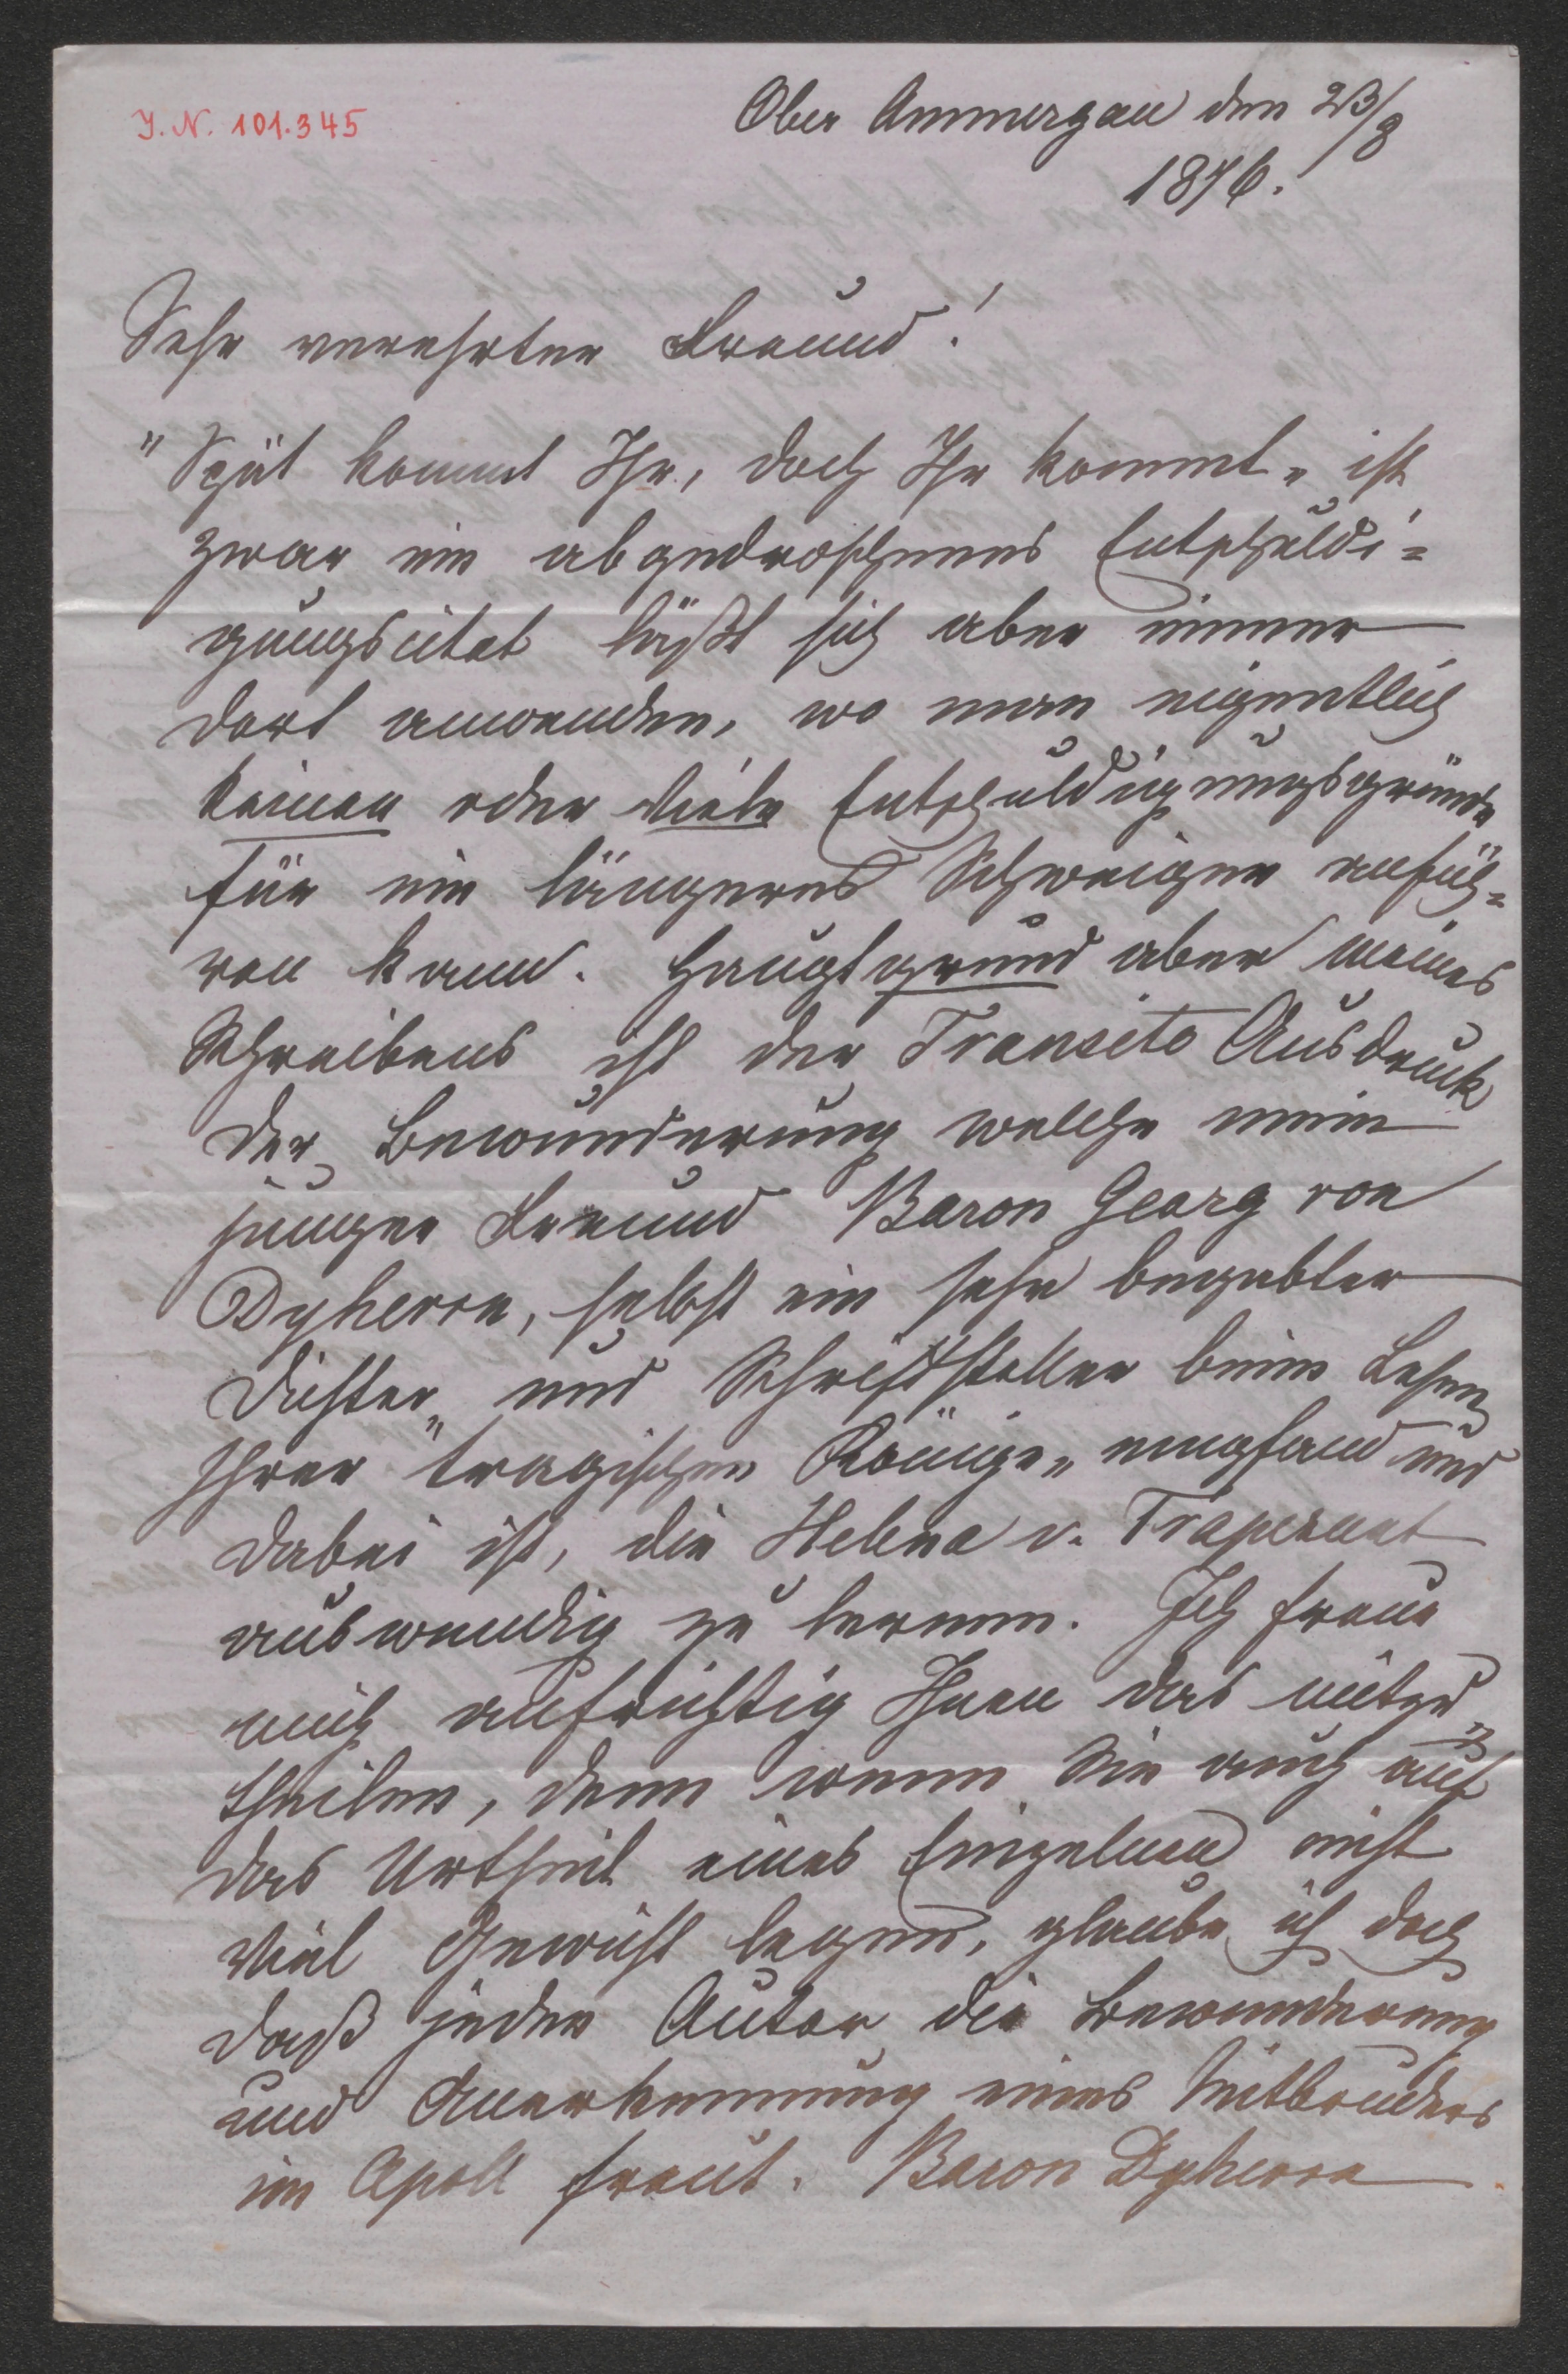 J. N. 101.345
Ober Ammergau den 23/8
1876.
Sehr verehrter Freund!
"Spät kommt Ihr, doch Ihr kommt" ist
zwar ein abgedroschenes Entschuldi=
gungscitat läßt sich aber immer
dort anwenden, wo man eigentlich
keinen oder viele Entschuldigungsgründe
für ein längeres Schweigen anfüh=
ren kann. Hauptgrund aber meines
Schreibens ist der Transito Ausdruck
der Bewunderung welche mein
junger Freund Baron Georg von
Dyherrn, selbst ein sehr begabter
Dichter und Schriftsteller beim Lesen
Ihrer "tragischen Könige" empfand und
dabei ist, die Helena v. Trapezunt
auswendig zu lernen. Ich freue
mich aufrichtig Ihnen das mitzu=
theilen, denn wenn Sie auch auf
das Urtheil eines Einzelnen nicht
viel Gewicht legen, glaube ich doch
daß jeden Autor die Bewunderung
und Anerkennung eines Mitbruders
im Apoll freut. Baron Dyherrn